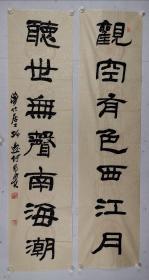 觀空有色西江月
聽世無聲南海潮